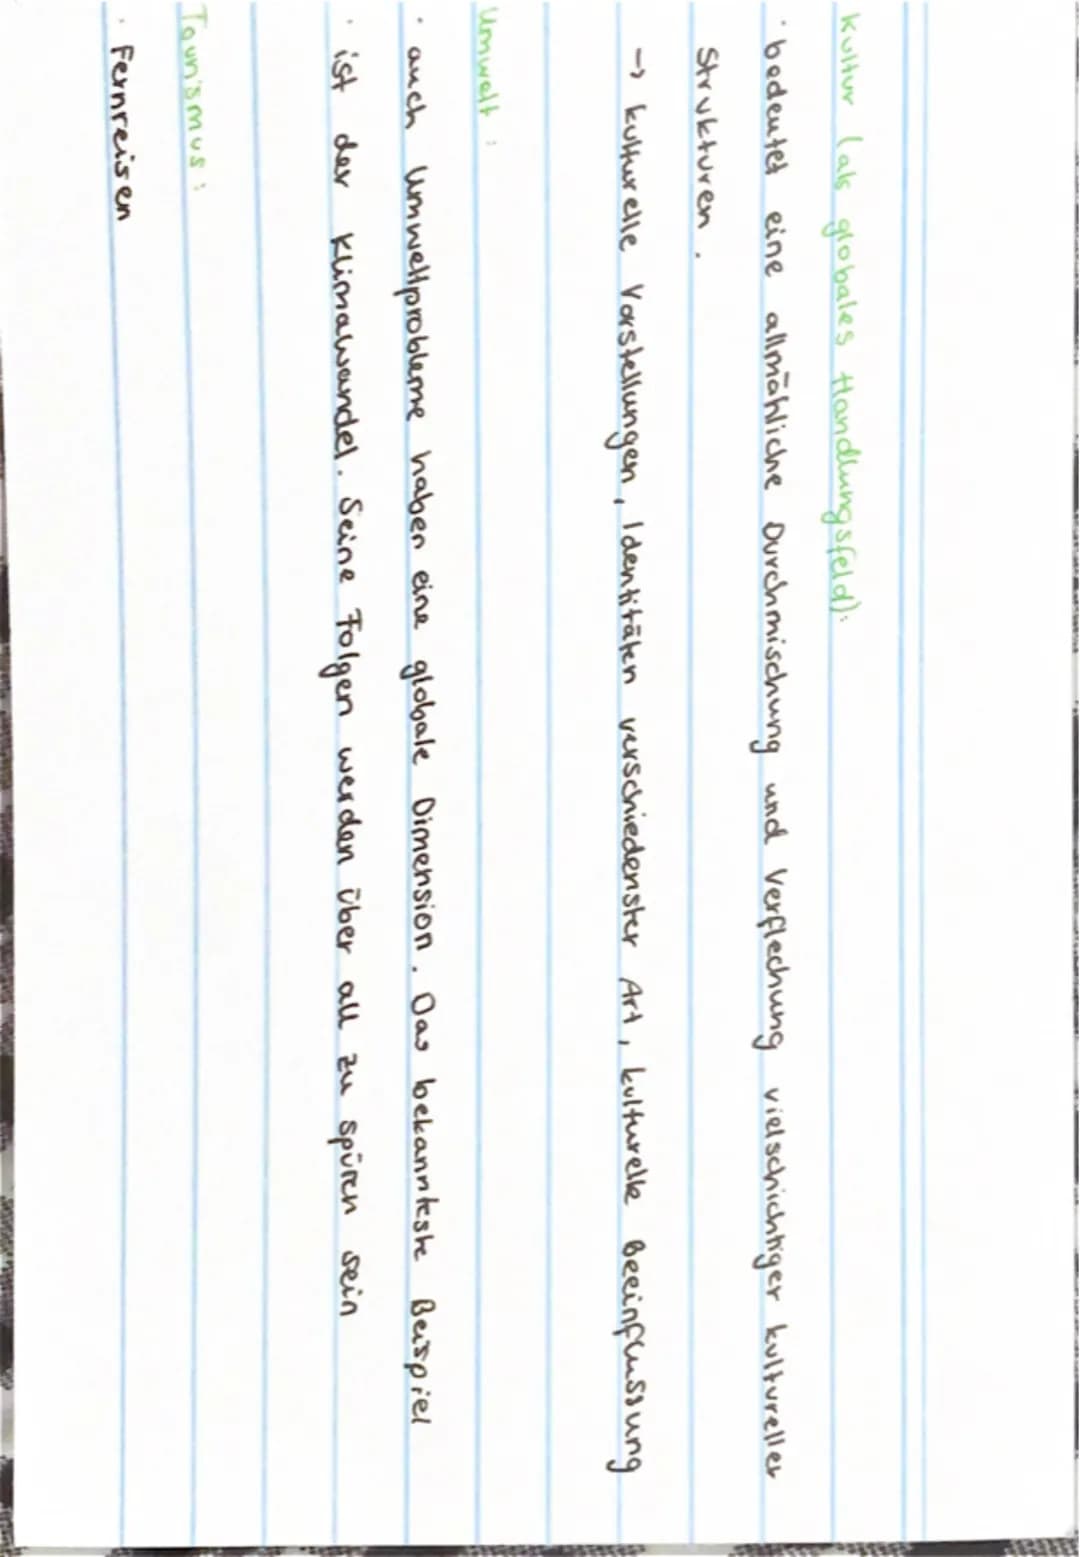 Kultur (als globales Handlungsfeld):
· bedeutet eine allmähliche Durchmischung und Verflechung vielschichtiger kultureller
Strukturen.
→ kulturelle Vorstellungen, Identitäten verschiedenster Art, kulturelle Beeinflussung
Umwelt:
· auch Umweltprobleme haben eine globale Dimension. Das bekannteste Beispiel
· ist der Klimawandel. Seine Folgen werden über all zu spüren sein
Tourismus:
· Fernreisen